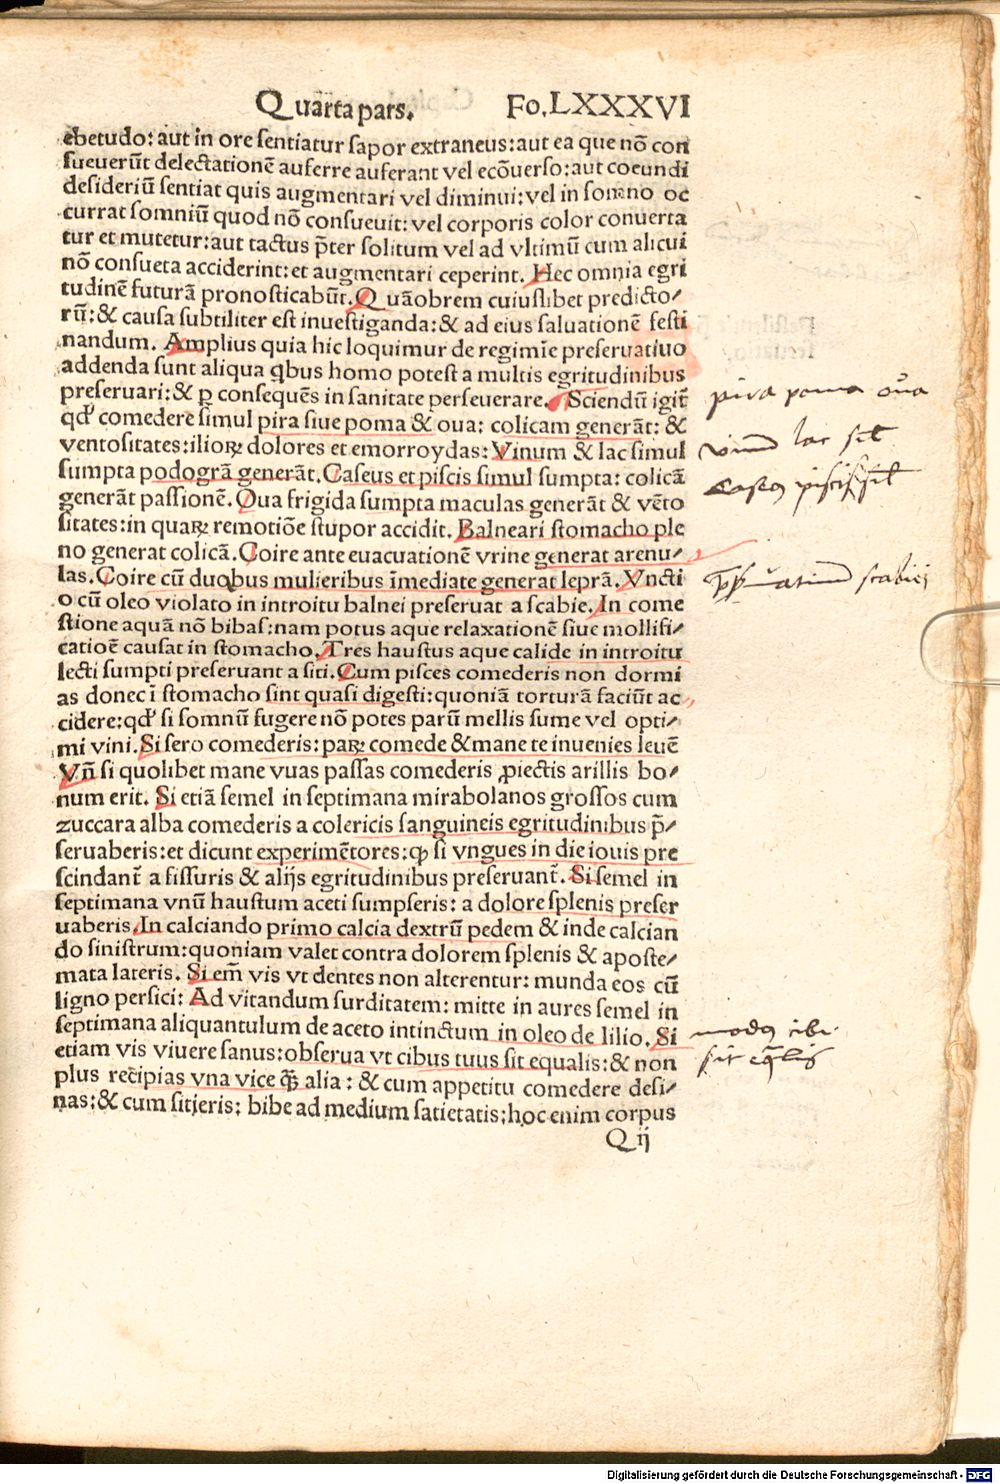 Quarta pars. Fo.LXXXVI
ebetudo: aut in ore sentiatur sapor extraneus: aut ea que nō con
sueuerūt delectationē auferre auferant vel ecōuerso: aut coeundi
desideriū sentiat quis augmentari vel diminui: vel in somno oc
currat somniū quod nō consueuit: vel corporis color conuerta
tur et mutetur: aut tactus p̄ter solitum vel ad vltimū cum alicui
nō consueta acciderint: et augmentari ceperint. Hec omnia egri
tudinē futurā pronosticabūt. Quāobrem cuiuslibet predicto/
rū: & causa subtiliter est inuestiganda: & ad eius saluationē festi
nandum. Amplius quia hic loquimur de regimīe preseruatiuo
addenda sunt aliqua qbus homo potest a multis egritudinibus
preseruari: & ꝑ consequēs in sanitate perseuerare. Sciendū igit᷑
qd' comedere simul pira siue poma & oua: colicam generāt: &
ventositates: ilioꝝ dolores et emorroydas: Vinum & lac simul
sumpta podogrā generāt. Caseus et piscis simul sumpta: colicā
generāt passionē. Qua frigida sumpta maculas generāt & vēto
sitates: in quaꝝ remotiōe stupor accidit. Balneari stomacho ple
no generat colicā. Coire ante euacuationē vrine generat arenu/
las. Coire cū duobus mulieribus īmediate generat leprā. Vncti
o cū oleo violato in introitu balnei preseruat a scabie. In come
stione aquā nō bibas: nam potus aque relaxationē siue mollifi/
catioē causat in stomacho. Tres haustus aque calide in introitu
lecti sumpti preseruant a siti. Cum pisces comederis non dormi
as donec ī stomacho sint quasi digesti: quoniā torturā faciūt ac
cidere: qd' si somnū fugere nō potes parū mellis sume vel opti/
mi vini. Si sero comederis: paꝝ comede & mane te inuenies leuē
Vn̄ si quolibet mane vuas passas comederis ꝓiectis arillis bo/
num erit. Si etiā semel in septimana mirabolanos grossos cum
zuccara alba comederis a colericis sanguineis egritudinibus p̄/
seruaberis: et dicunt experimētores: ꝙ si vngues in die iouis pre
scindant᷑ a fissuris & alijs egritudinibus preseruant᷑. Si semel in
septimana vnū haustum aceti sumpseris: a dolore splenis preser
uaberis. In calciando primo calcia dextrū pedem & inde calcian
do sinistrum: quoniam valet contra dolorem splenis & aposte/
mata lateris. Si em̄ vis vt dentes non alterentur: munda eos cū
ligno persici: Ad vitandum surditatem: mitte in aures semel in
septimana aliquantulum de aceto intinctum in oleo de lilio. Si
etiam vis viuere sanus: obserua vt cibus tuus sit equalis: & non
plus recipias vna vice qꝫ alia: & cum appetitu comedere desi/
nas: & cum sitieris: bibe ad medium satietatis: hoc enim corpus
Q ij
pira poma oūa
vinū lac sil̄
caseꝰ piscis sil̄
scabiei
modꝰ cibi
sit eq̄lis
Digitalisierung gefördert durch die Deutsche Forschungsgemeinschaft - DFG